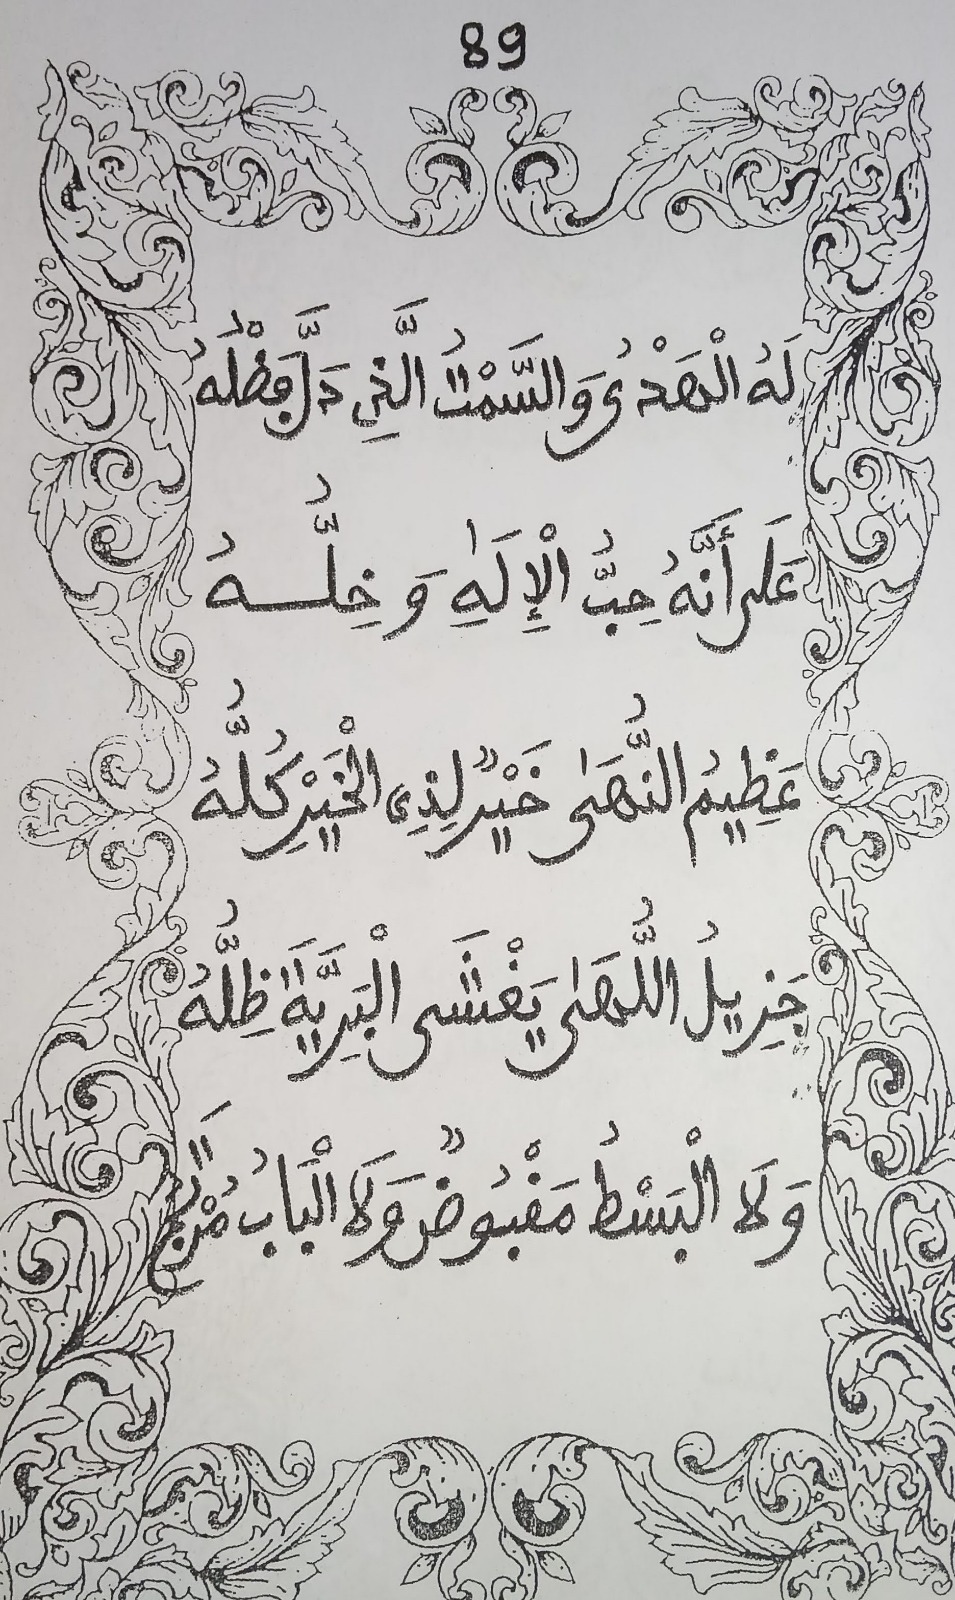 89
لَهُ الْهَدْيُ وَالسَّمْتُ الَّذِي دَلَّ فَضْلُهُ
عَلَى أَنَّهُ حِبُّ الْإِلَٰهِ وَخِلُّهُ
عَظِيمُ النُّهَىٰ خَيْرٌ لِذِي الْخَيْرِ كُلُّهُ
جَزِيلُ اللُّهَىٰ يَغْشَى الْبَرِيَّةَ ظِلُّهُ
وَلَا الْبَسْطُ مَقْبُوضٌ وَلَا الْبَابُ مُرْتَجُ